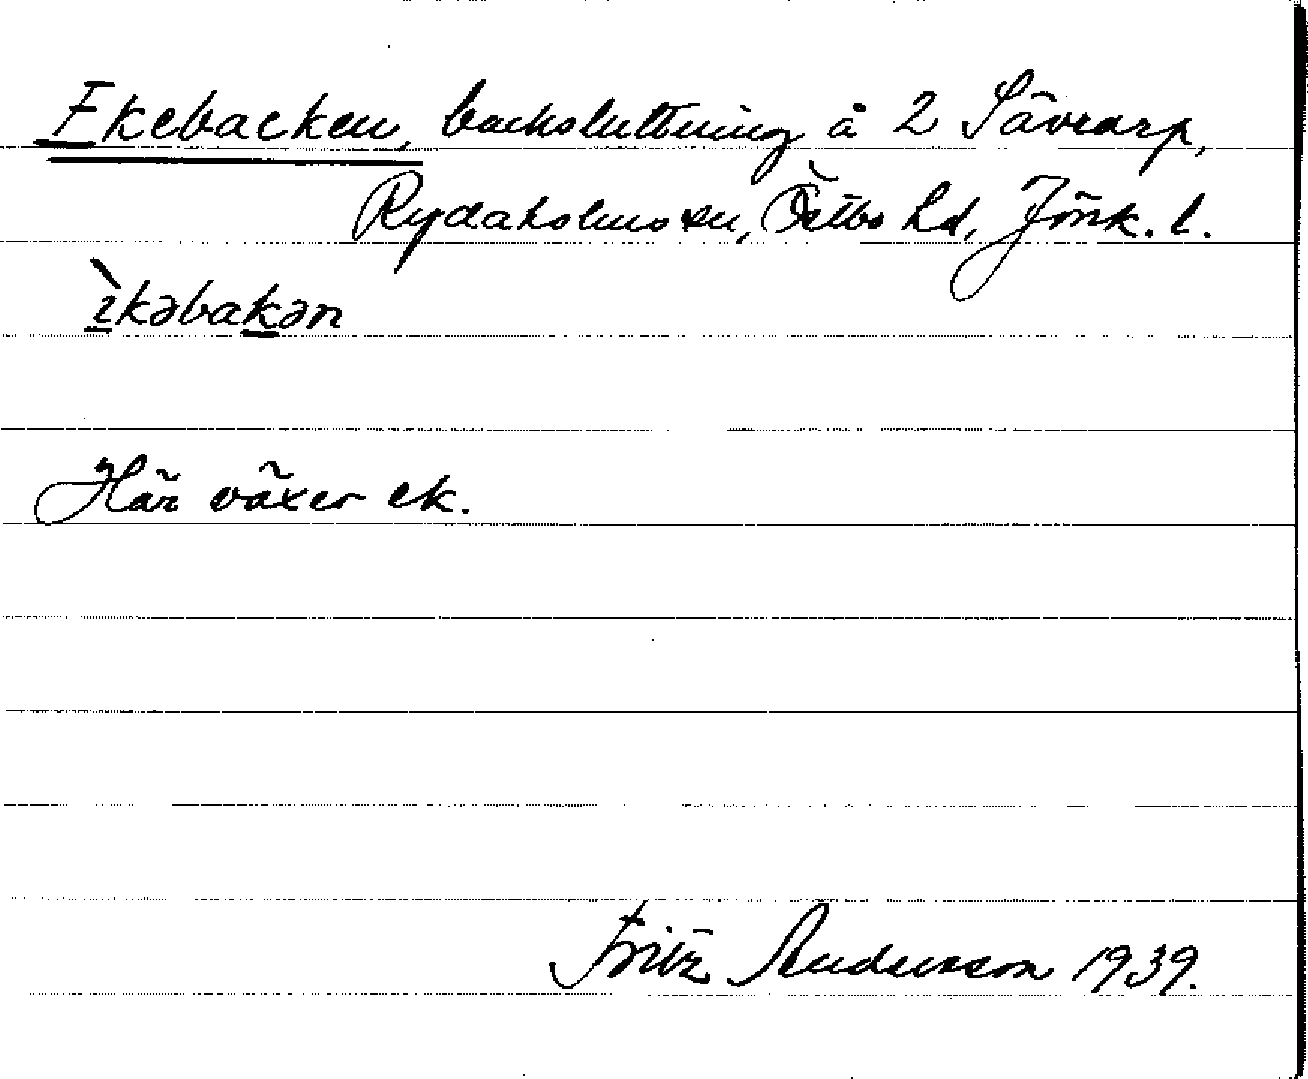 Ekebacken, backsluttning å 2 Sävrarp,
Rydaholms sn, Östbo hd, Jönk. l.
ìkəbakən
Här växer ek.
Fritz Andersson 1939.